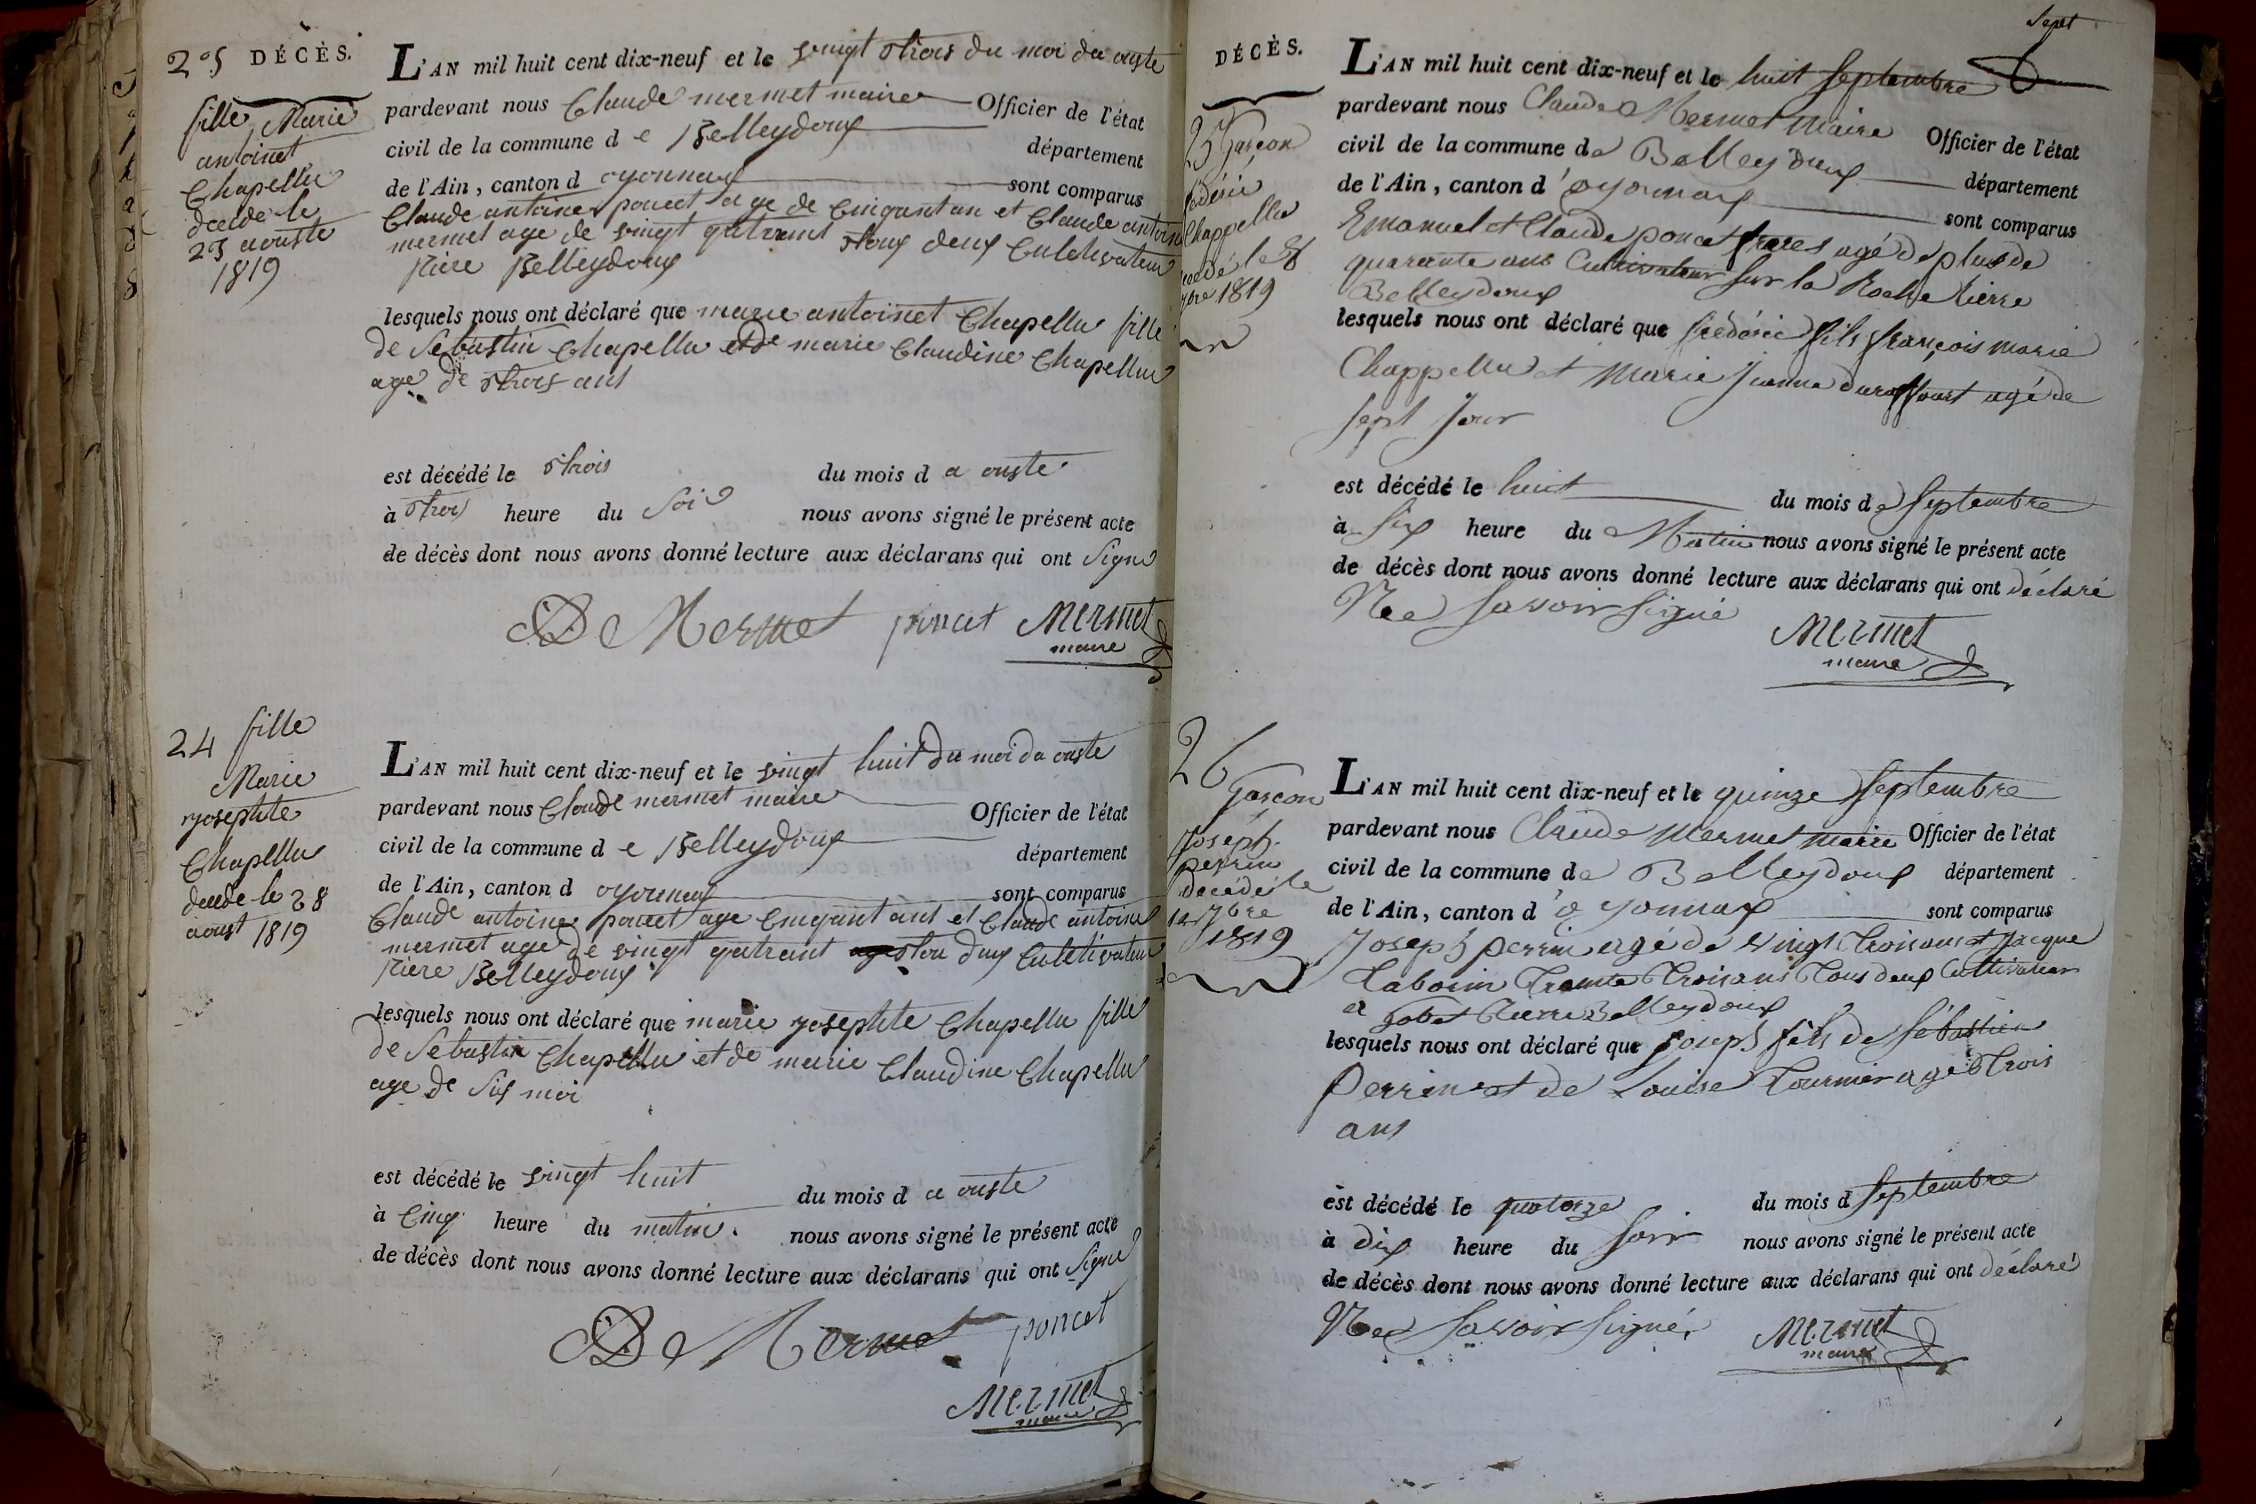 23 DÉCÈS.
fille Marie
antoinet
Chapellu
decede le
23 aouste
1819
L'AN mil huit cent dix-neuf et le vingt trois du moi da ouste
pardevant nous Claude mermet maire Officier de l'état
civil de la commune d e Belleydoux département
de l'Ain, canton d oyonnax sont comparus
Claude antoine poncet age de Cinquantan et Claude antoine
mermet age de vingt quatreans tous deux Cultivateur
Belleydoux
lesquels nous ont déclaré que marie antoinet Chapellu fille
de Sebastin Chapellu et de marie Claudine Chapellu
age de trois ans
est décédé le trois du mois d a ouste
à trois heure du Soir nous avons signé le présent acte
de décès dont nous avons donné lecture aux déclarans qui ont Signe
Mermet poncet Mermet
maire
24 fille
Marie
Chapellu
decede le 28
aoust 1819
L'AN mil huit cent dix-neuf et le vingt huit du moi da ouste
pardevant nous Claude mermet maire Officier de l'état
civil de la commune d e Belleydoux département
de l'Ain, canton d oyonnax sont comparus
Claude antoine poncet age Cinquant ans et Claude antoine
mermet age de vingt quatreant tou deux Cultivateur
Belleydoux
lesquels nous ont déclaré que marie yosephte Chapellu fille
de Sebastin Chapellu et de marie Claudine Chapellu
age de Six moi
est décédé le vingt huit du mois d a ouste
à Cinq heure du matin. nous avons signé le présent acte
de décès dont nous avons donné lecture aux déclarans qui ont Signe
Mermet poncet
Mermet
maire
Sept
DÉCÈS.
25 Garçon
Chappellu
le 8
7bre 1819
L'AN mil huit cent dix-neuf et le huit Septembre
pardevant nous Claude Mermet Maire Officier de l'état
civil de la commune de Belleydoux département
de l'Ain, canton d'oyonnax sont comparus
Emanuel et Claude poncet freres agé de plus de
quarante ans Cultivateur Sur la Roche Rierre
Belleydoux
lesquels nous ont déclaré que frédéric fils françois marie
Chappellu et Marie Jeanne duraffourt agé de
Sept Jour
est décédé le huit du mois de Septembre
à Six heure du Matin nous avons signé le présent acte
de décès dont nous avons donné lecture aux déclarans qui ont déclaré
Ne Savoir Signé
Mermet
maire
26
Garçon
Joseph
perrin
decédé le
14 7bre
1819
L'AN mil huit cent dix-neuf et le quinze Septembre
pardevant nous Claude Mermet Marie Officier de l'état
civil de la commune de Belleydoux département
de l'Ain, canton d'oyonnax sont comparus
Joseph perrin agé de vingt Trois ans et Jacque
Tabouin Trante Trois ans Tous deux Cultivateur
Belleydoux
lesquels nous ont déclaré que Joseph fils de Sébastien
Perrin et de Louise Tournier agé Trois
ans
est décédé le quatorze du mois d Septembre
à dix heure du Soir nous avons signé le présent acte
de décès dont nous avons donné lecture aux déclarans qui ont déclaré
Ne Savoir Signér
Mermet
maire